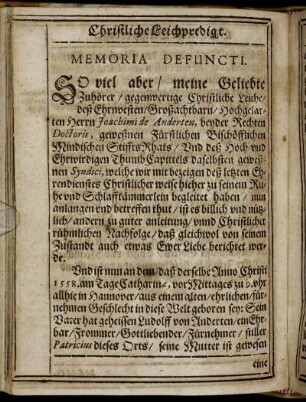 Christliche Leichpredigt.
MEMORIA DEFUNCTI.
SO viel aber/ meine Geliebte
Zuhörer/ gegenwertige Christliche Leiche/
deß Ehrnvesten/ Großachtbarn/ Hochgelar-
ten Herrn Joachimi de Anderten, beyder Rechten
Doctoris, gewesnen Fürstlichen Bischöfflichen
Mindischen Stiffts Rhats/ Vnd deß Hoch vnd
Ehrwirdigen Thumb Capittels daselbsten gewes-
nen Syndici, welche wir mit bezeigen deß letzten Eh-
rendienstes Christlicher weise hieher zu seinem Ru-
he vnd Schlaffkämmerlein begleitet haben/ nun
anlangen vnd betreffen that/ ist es billich vnd nütz-
lich/ andern zu guter anleitung/ vnnd Christlicher
rühmlichen Nachfolge/ daß gleichwol von seinem
Zustandt auch etwas Ewer Liebe berichtet wer-
de.
Vnd ist nun an dem/ daß derselbe Anno Christi
1558. am Tage Catharinæ, vor Mittages zu 9. vhr
allhie in Hannover/ aus einem alten/ ehrlichen/ für-
nehmen Geschlecht in diese Welt geboren sey: Sein
Vater hat geheissen Ludolff von Anderten/ ein Ehr-
bar/ Frommer/ Gottliebender/ Fürnehmer/ stiller
Patricius dieses Orts/ seine Mutter ist gewesen
eine